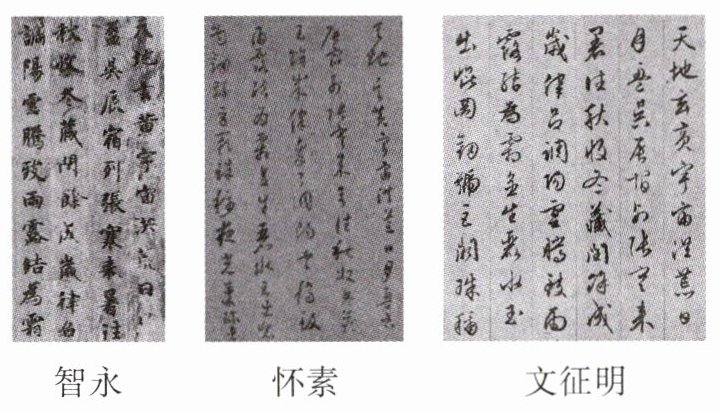 天地玄黄宇宙洪荒日
盈昃辰宿列張寒來暑往
秋收冬藏閏餘成歲律呂
調陽雲騰致雨露結為霜
智永
天地玄黄宇宙洪荒日月盈昃
辰宿列張寒來暑往秋收冬藏
閏餘成歲律呂調陽雲騰致
雨露結為霜金生麗水玉出崑
岡劍號巨闕珠稱夜光果珍李
怀素
天地玄黄宇宙洪荒日
月盈昃辰宿列張寒来
暑往秋收冬藏閏餘成
歲律呂調陽雲騰致雨
露結為霜金生麗水玉
出崑岡劍號巨闕珠稱
文征明